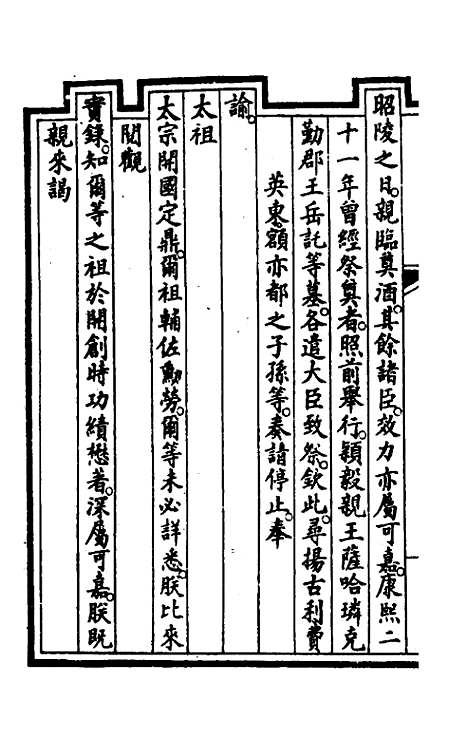 昭陵之日。親臨奠酒。其餘諸臣。效力亦屬可嘉。康熙二
十一年曾經祭奠者。照前舉行。穎毅親王薩哈璘克
勤郡王岳託等墓。各遣大臣致祭。欽此。尋揚古利費
英東額亦都之子孫等。奏請停止。奉
諭。
太祖
太宗開國定鼎。爾祖輔佐勳勞。爾等未必詳悉。朕比來
閱觀
實錄。知爾等之祖於開創時功績懋著。深屬可嘉。朕既
親來謁